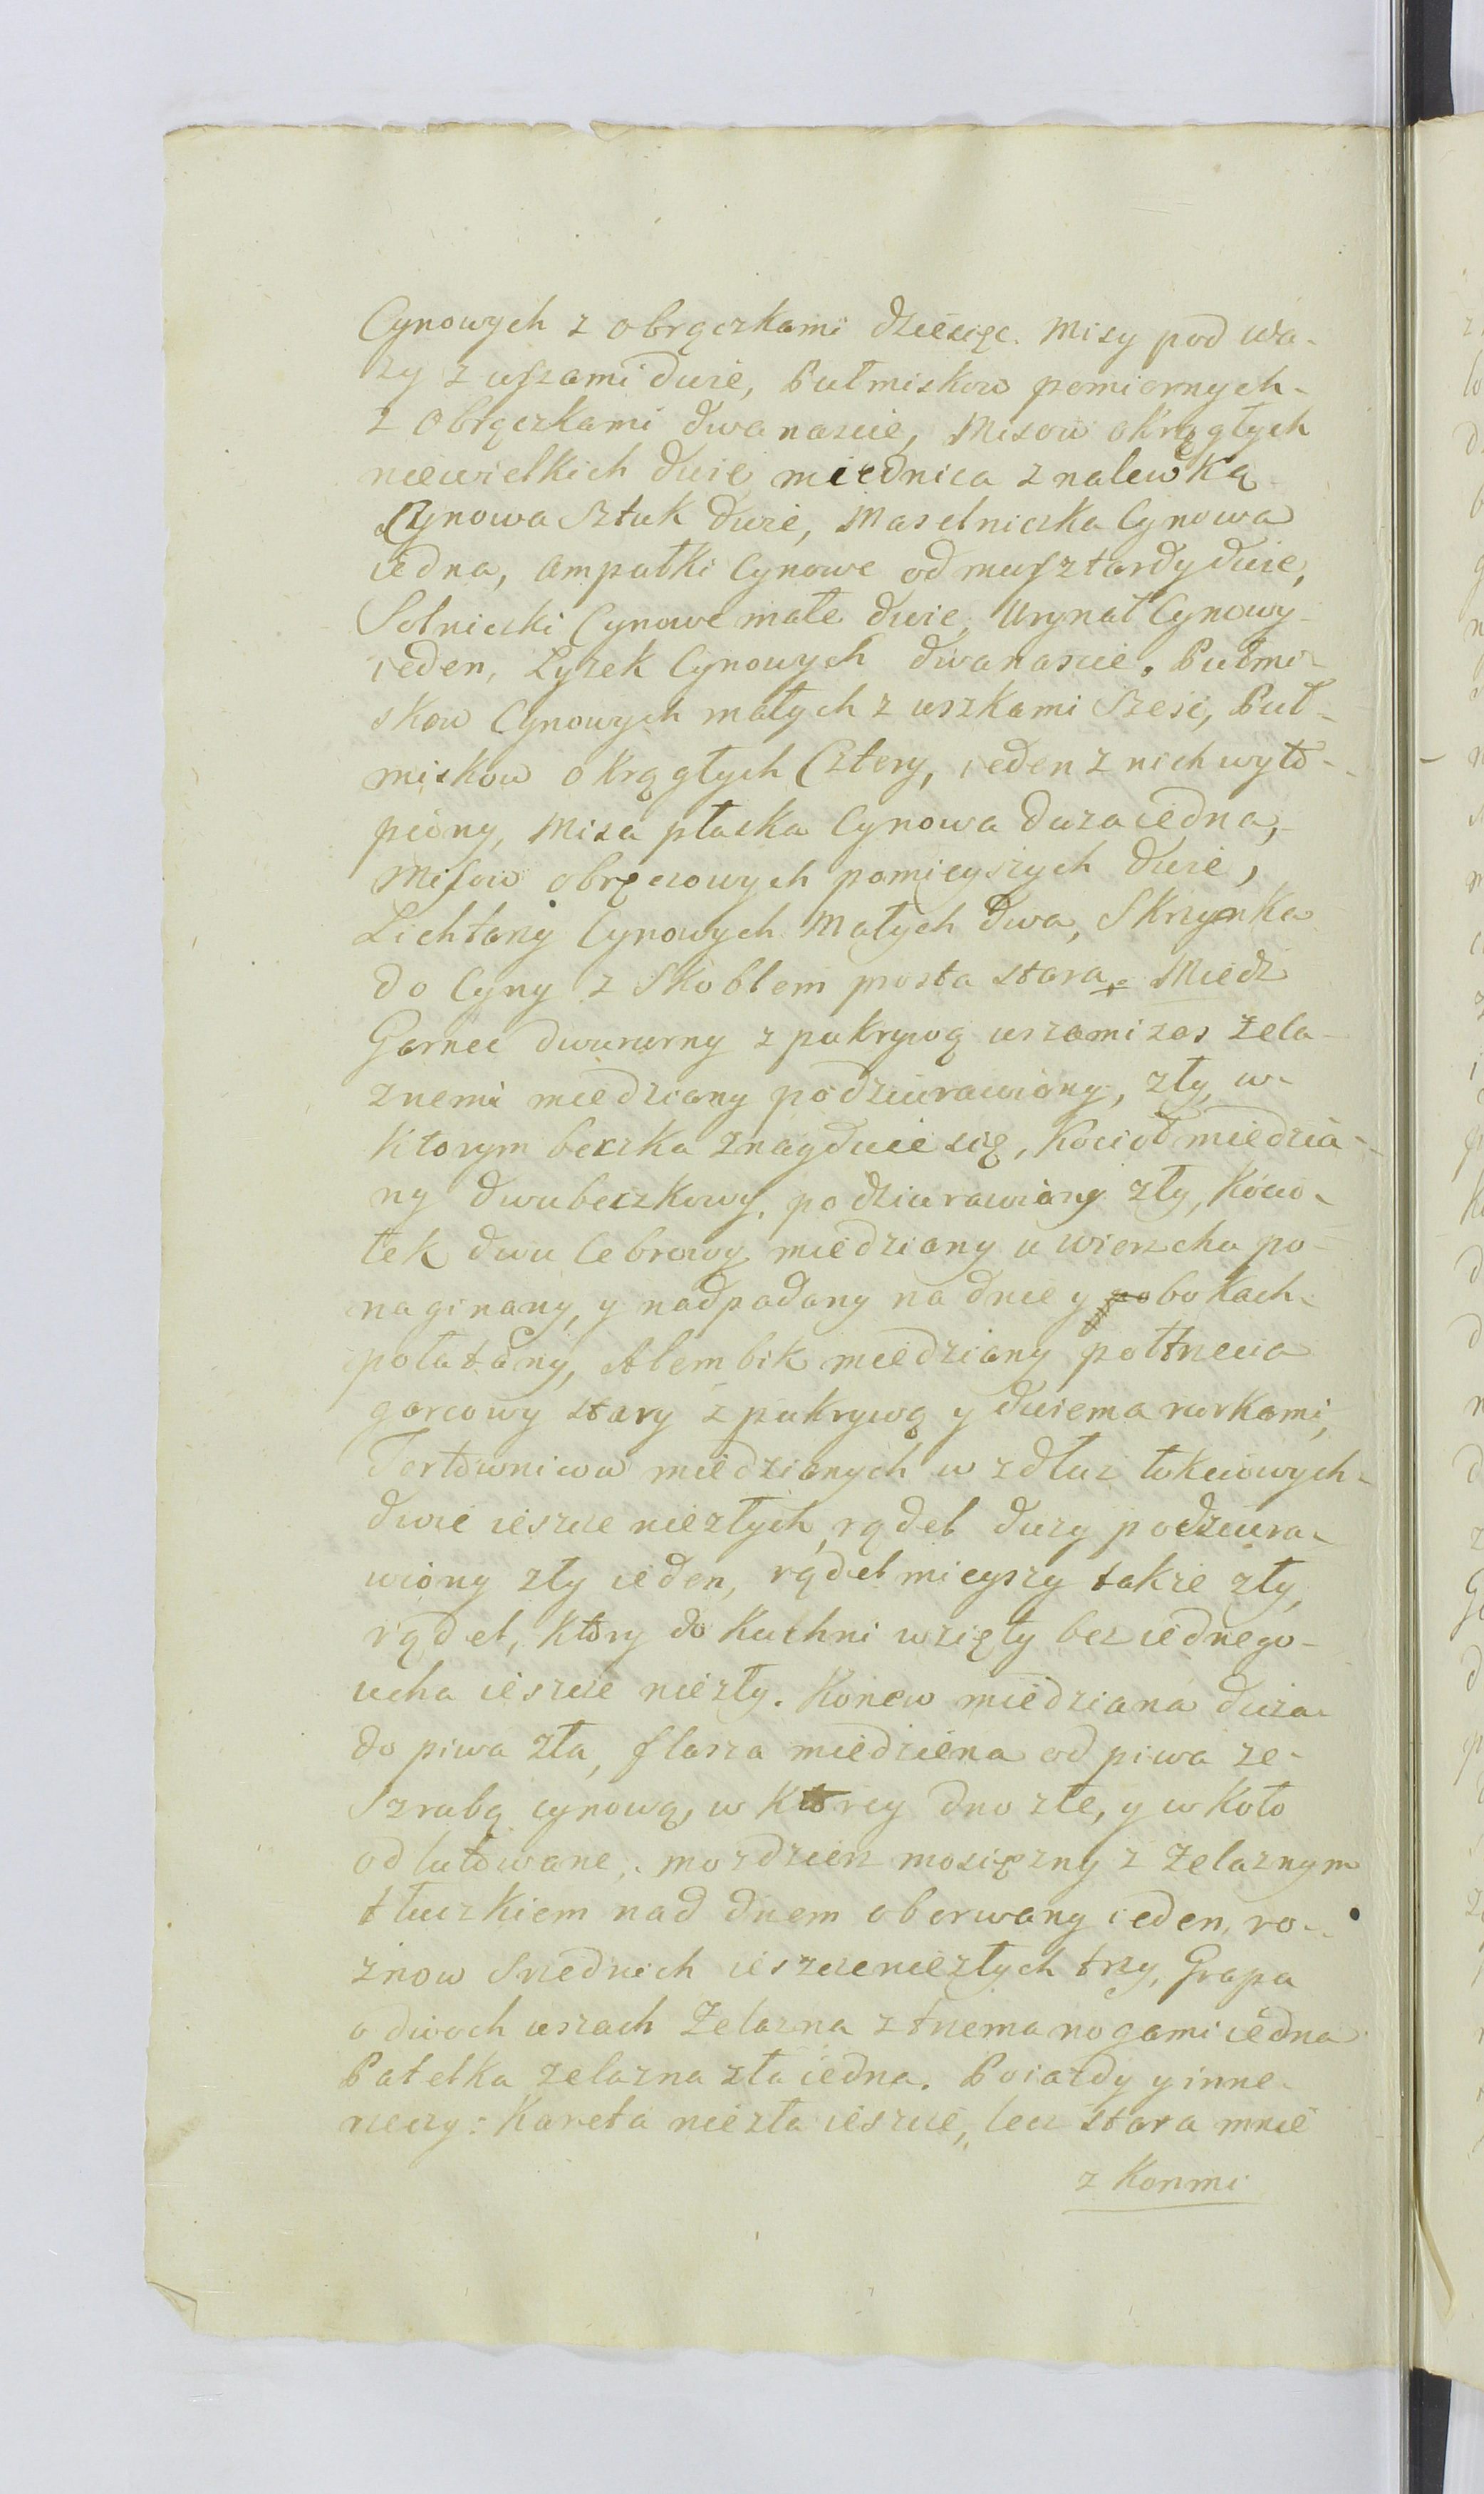 Cynowych z obrączkami dziesięc. Misy pod wa-
zy z uszami dwie, Pułmiskow pomiernych-
z obrączkami dwanascie, Misow okrągłych
niewielkich dwie miednica z nalewką
Cynowa Sztuk dwie, Maselniczka Cynowa
iedna, ampułki Cynowe od musztardy dwie,
Solniczki Cynowe małe dwie, Urynał Cynowy-
ieden, Łyżek Cynowych dwanascie. Pułmi-
skow Cynowych małych z uszkami Szesć, Puł-
miskow okrągłych Cztery, ieden z nich wyto-
piony, Misa płaska Cynowa duza iedna,
Misow obręczowych pomieyszych dwie,
Lichtarzy Cynowych Małych dwa, Skrzynka
do Cyny z Skoblem prosta stara. Miedź
Garnec dwururny z pokrywą uszami zas żela-
znemi miedziany podziurawiony, zły, w-
Ktorym beczka znayduie się, Kocioł miedzia-
ny dwubeczkowy, podziurawiony zły, Kocio-
łek dwu Cebrowy miedziany u wierzchu po-
naginany, y nadpadany na dnie y bokach-
połatany, Alembik miedziany półtrzecia
garcowy stary z pukrywą y dwiema rurkami,
Tortownicow miedzianych w zdłuż łokciowych-
dwie ieszcze niezłych, rądel duzy podziura-
wiony zły ieden, rądel mieyszy takze zły,
rądel, Ktory do Kuchni wzięty bez iednego-
ucha ieszcze niezły. Konew miedziana duża
do piwa zła, flasza miedziena od piwa ze-
Szrubą cynową, w Ktorey dno złe, y w Koło
odlutowane, mozdzierz mosiężny z żelaznym
tłuczkiem nad dnem oberwany ieden, ro-
żnow Srzednich ieszcze niezłych trzy, Grapa
o dwoch uszach Żelazna z trzema nogami iedna
Patelka żelazna zła iedna. Poiazdy y inne-
rzeczy: Kareta niezła ieszcze, lecz stara mnie
z Konmi